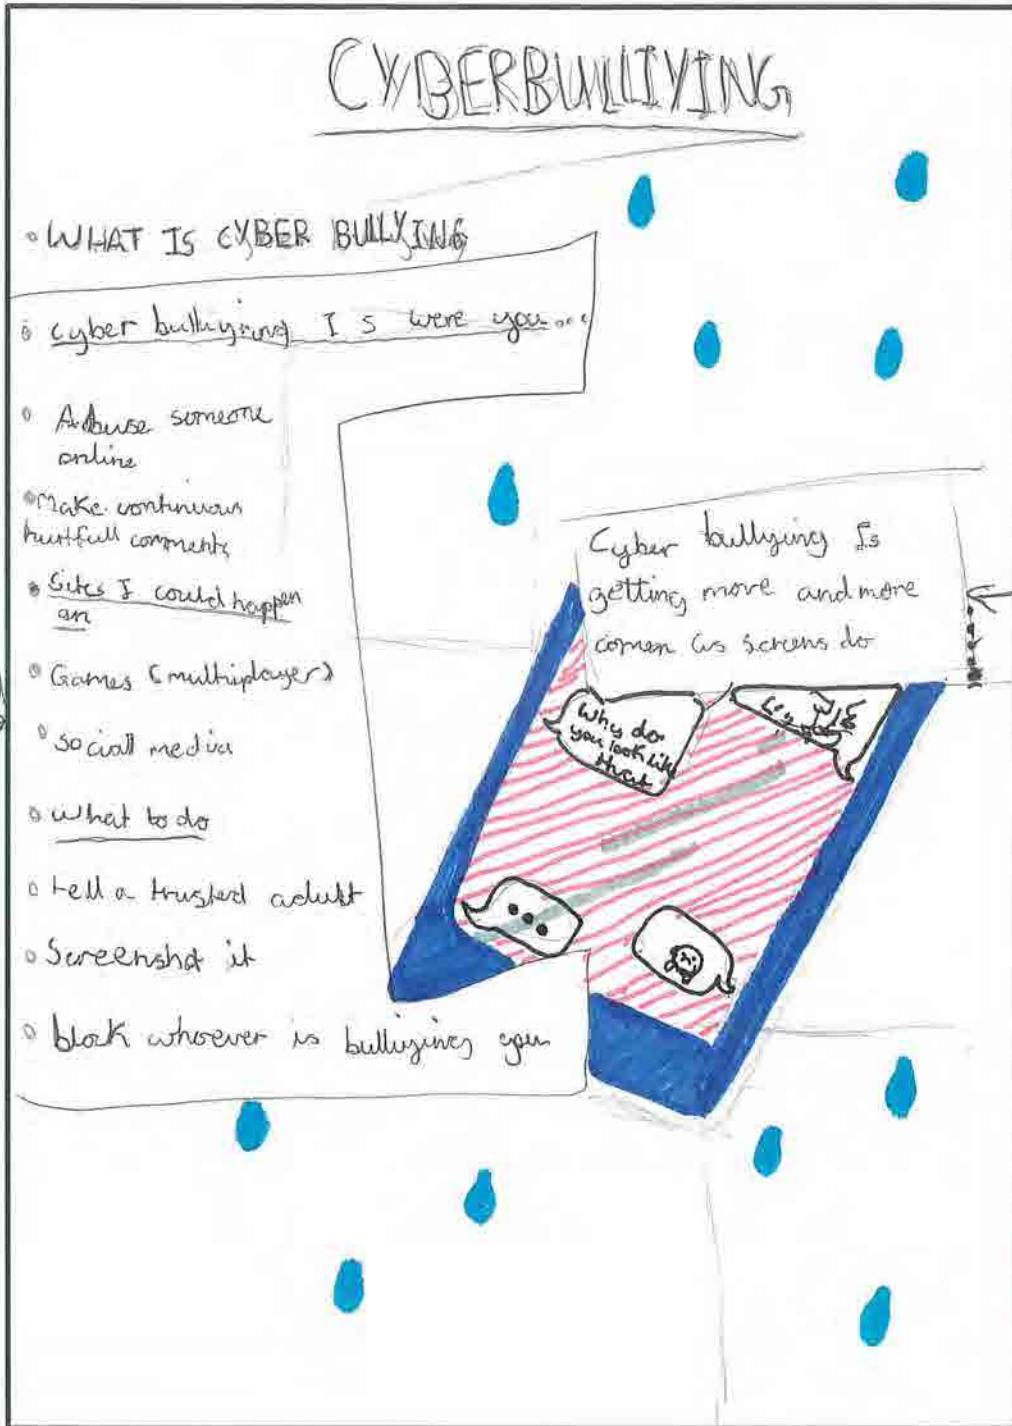 CYBERBULLIYING
WHAT IS CYBER BULLYING
cyber bulliying I s were you...
Abuse someone
online
Make continuous
hurtfull comments
Sites I could happen
on
Games (multiplayer)
sociall media
what to do
tell a trusted adult
Screenshot it
block whoever is bulliying you
Cyber bullying Is
getting more and more
comen as screens do
Why do
you look like
that